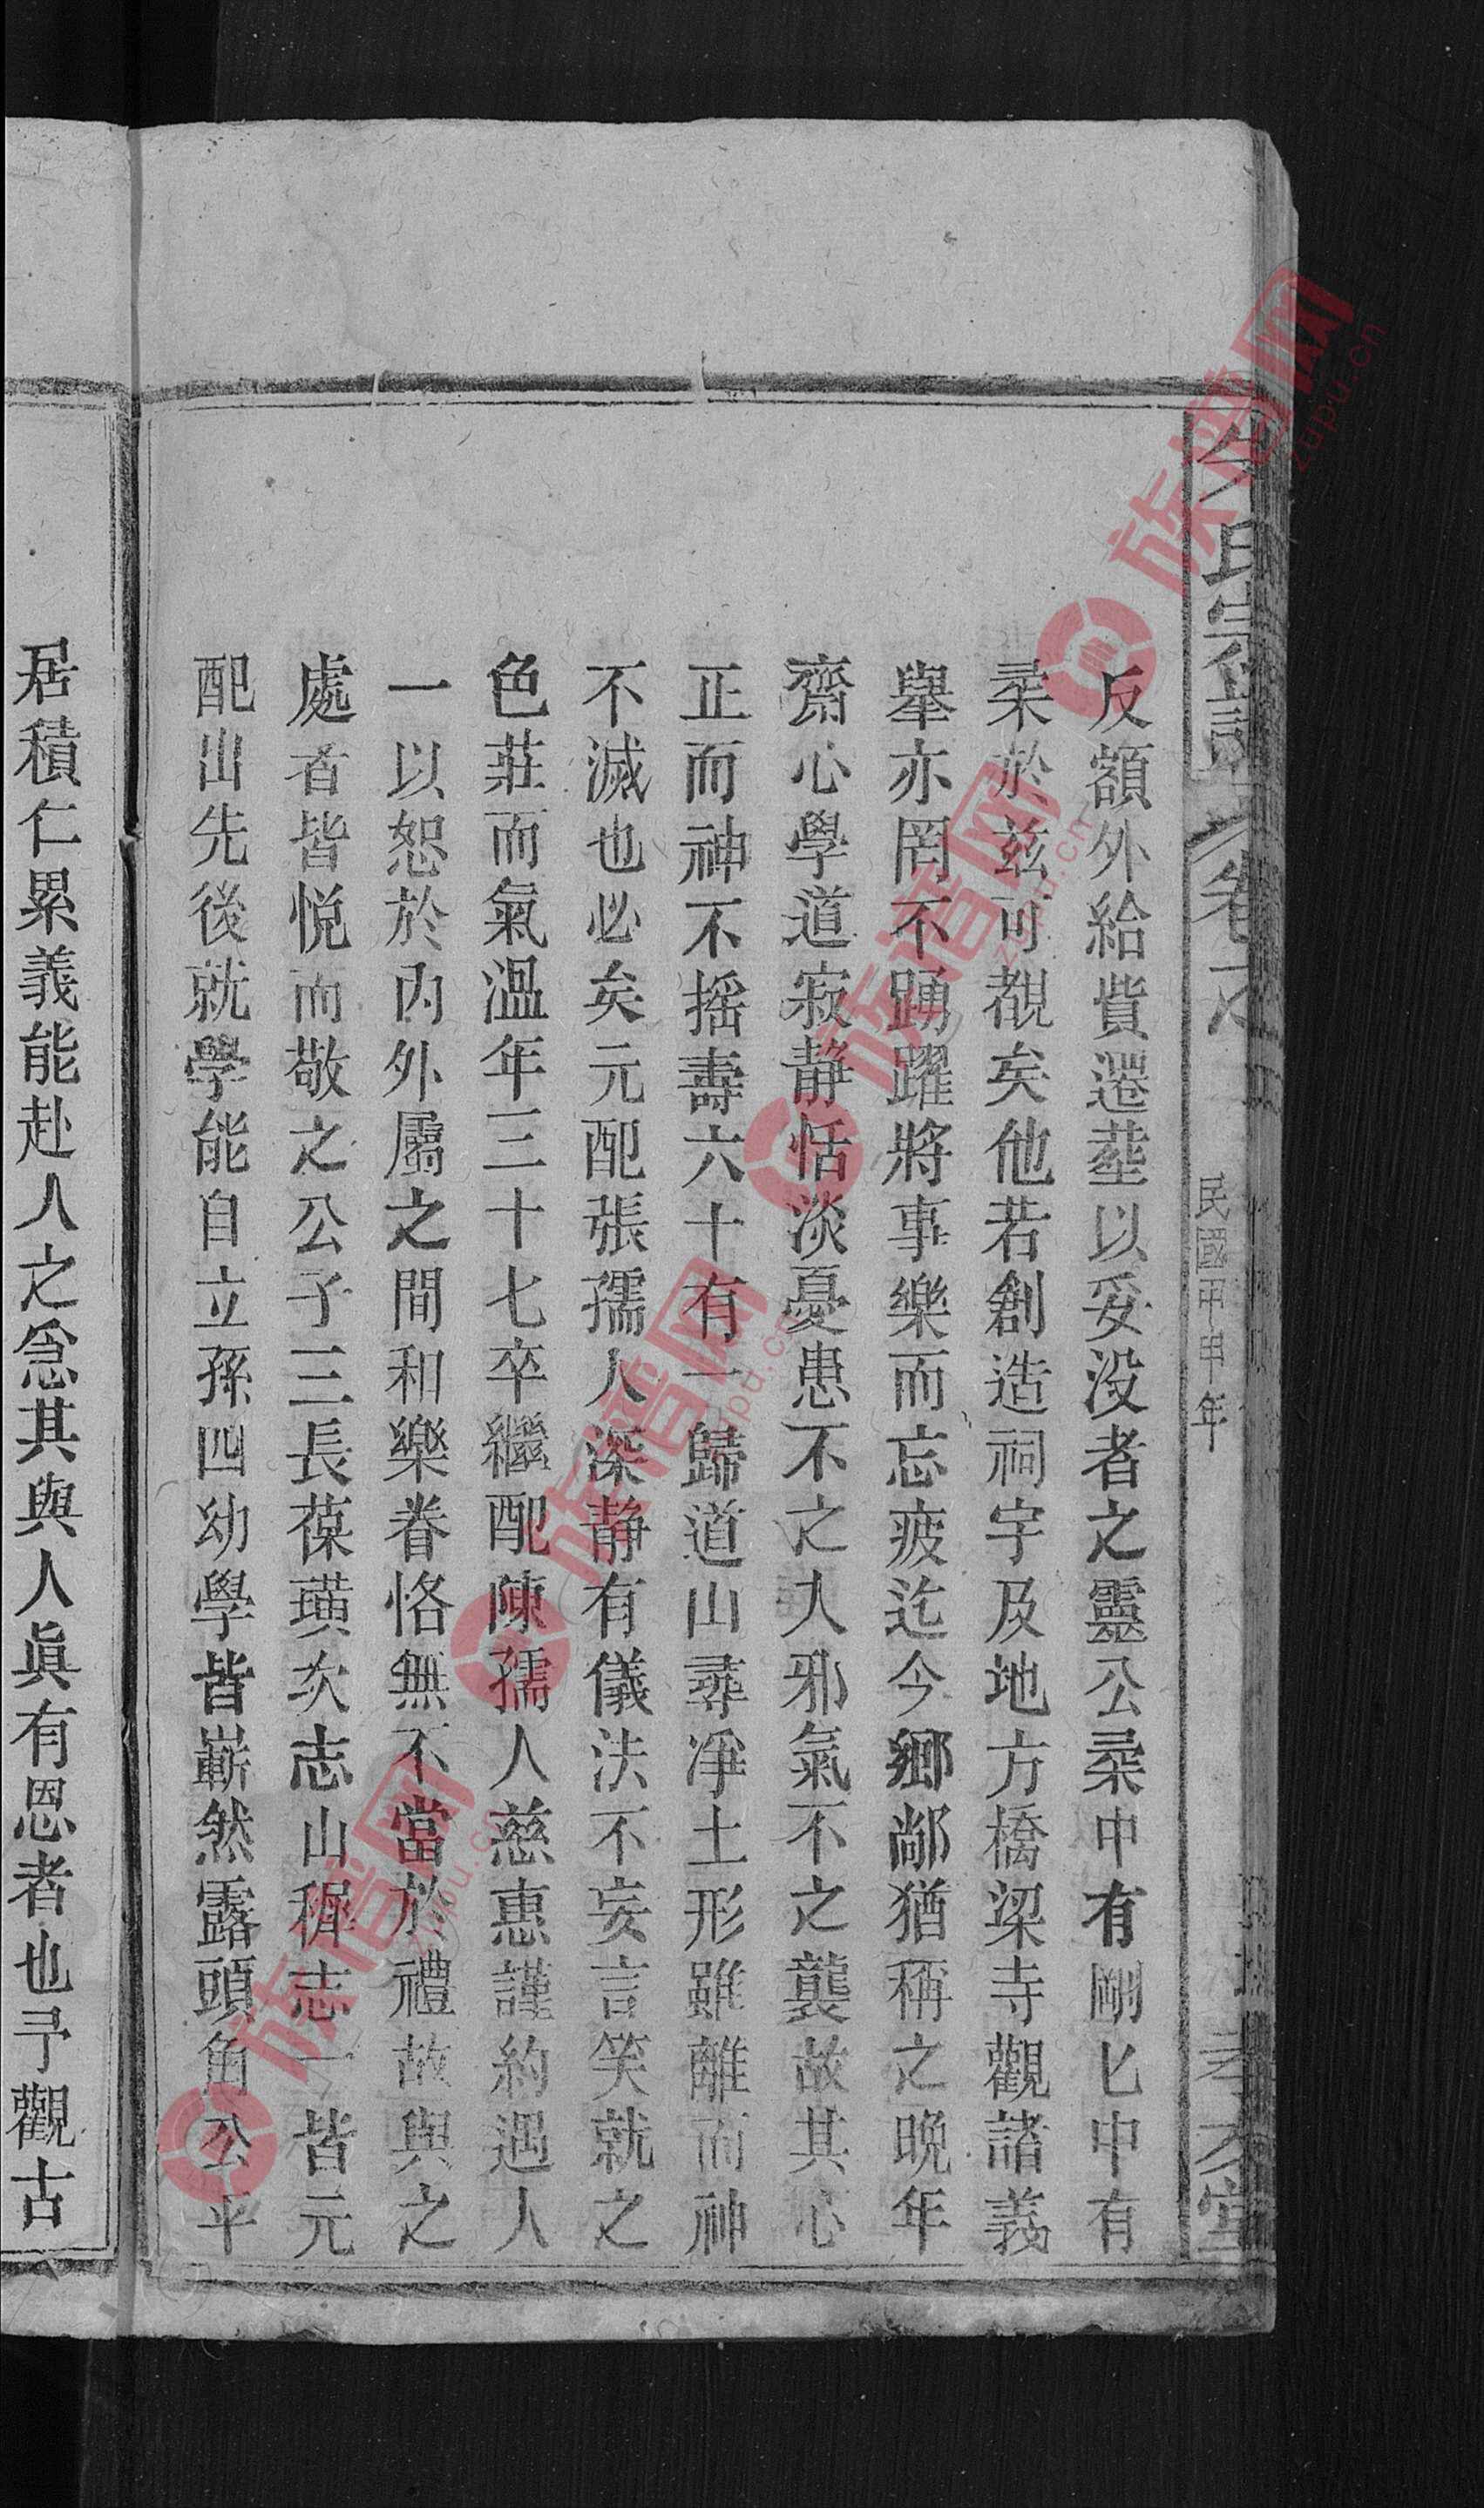 氏宗譜
卷之
民國甲申年
孝友堂
反額外給貲遷塟以妥没者之靈公柔中有剛匕中有
柔於兹可覩矣他若創造祠宇及地方橋梁寺觀諸義
舉亦罔不踴躍將事樂而忘疲迄今鄉鄰猶稱之晩年
齋心學道寂静恬淡憂患不之入邪氣不之襲故其心
正而神不摇壽六十有一歸道山尋凈土形雖離而神
不滅也必矣元配張孺人深静有儀法不妄言笑就之
色莊而氣溫年三十七卒繼配陳孺人慈惠謹約遇人
一以恕於內外屬之間和樂眷恪無不當於禮故與之
處者皆悦而敬之公子三長葆璜次志山穉志一皆元
配出先後就學能自立孫四幼學皆嶄然露頭角公平
居積仁累義能赴人之急其與人眞有恩者也予觀古
族谱网 zupu.cn
族谱网 zupu.cn
族谱网 zupu.cn
族谱网 zupu.cn